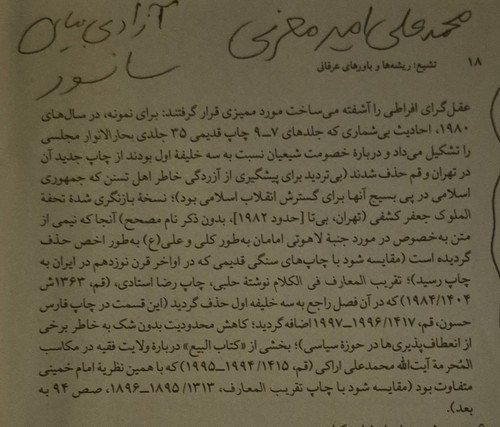 آزادی بیان
سانسور
محمد علی امیر معزی
۱۸ تشیع: ریشه‌ها و باورهای عرفانی
عقل‌گرای افراطی را آشفته می‌ساخت مورد ممیزی قرار گرفتند: برای نمونه، در سال‌های
۱۹۸۰، احادیث بی‌شماری که جلدهای ۷ــ۹ چاپ قدیمی ۳۵ جلدی بحارالانوار مجلسی
را تشکیل می‌داد و دربارهٔ خصومت شیعیان نسبت به سه خلیفهٔ اول بودند از چاپ جدید آن
در تهران و قم حذف شدند (بی‌تردید برای پیشگیری از آزردگی خاطر اهل تسنن که جمهوری
اسلامی در پی بسیج آنها برای گسترش انقلاب اسلامی بود)؛ نسخهٔ بازنگری شدهٔ تحفة
الملوک جعفر کشفی (تهران، بی‌تا [حدود ۱۹۸۲]، بدون ذکر نام مصحح) آنجا که نیمی از
متن به‌خصوص در مورد جنبهٔ لاهوتی امامان به‌طور کلی و علی(ع) به‌طور اخص حذف
گردیده است (مقایسه شود با چاپ‌های سنگی قدیمی که در اواخر قرن نوزدهم در ایران به
چاپ رسید)؛ تقریب المعارف فی الکلام نوشتهٔ حلبی، چاپ رضا استادی، (قم، ۱۳۶۳ش
/۱۴۰۴/۱۹۸۴) که در آن فصل راجع به سه خلیفه اول حذف گردید (این قسمت در چاپ فارس
حسون، قم، ۱۴۱۷/۱۹۹۶ــ۱۹۹۷ اضافه گردید؛ کاهش محدودیت بدون شک به خاطر برخی
از انعطاف‌پذیری‌ها در حوزهٔ سیاسی)؛ بخشی از «کتاب البیع» دربارهٔ ولایت فقیه در مکاسب
المُحرمة آیت‌الله محمدعلی اراکی (قم، ۱۴۱۵/۱۹۹۴ــ۱۹۹۵) که با همین نظریهٔ امام خمینی
متفاوت بود (مقایسه شود با چاپ تقریب المعارف، ۱۳۱۳/۱۸۹۵ــ۱۸۹۶، صص ۹۴ به
بعد).